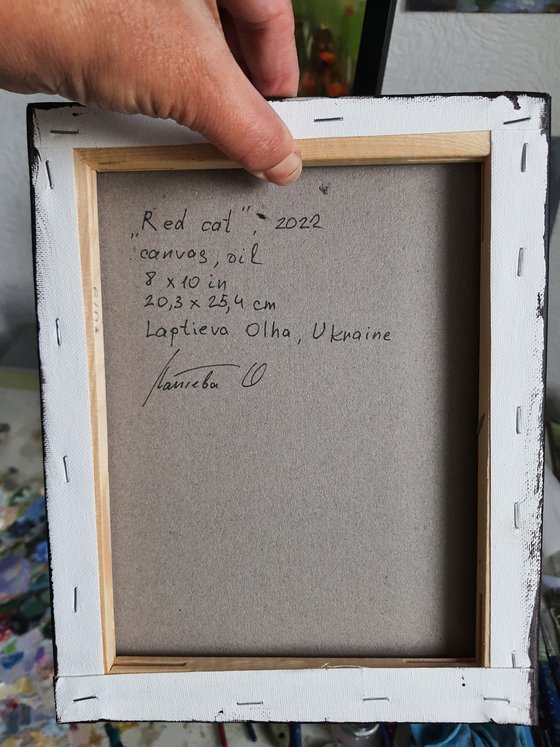 „Red cat", 2022
canvas, oil
8 x 10 in
20,3 x 25,4 cm
Laptieva Olha, Ukraine
Лаптєва О